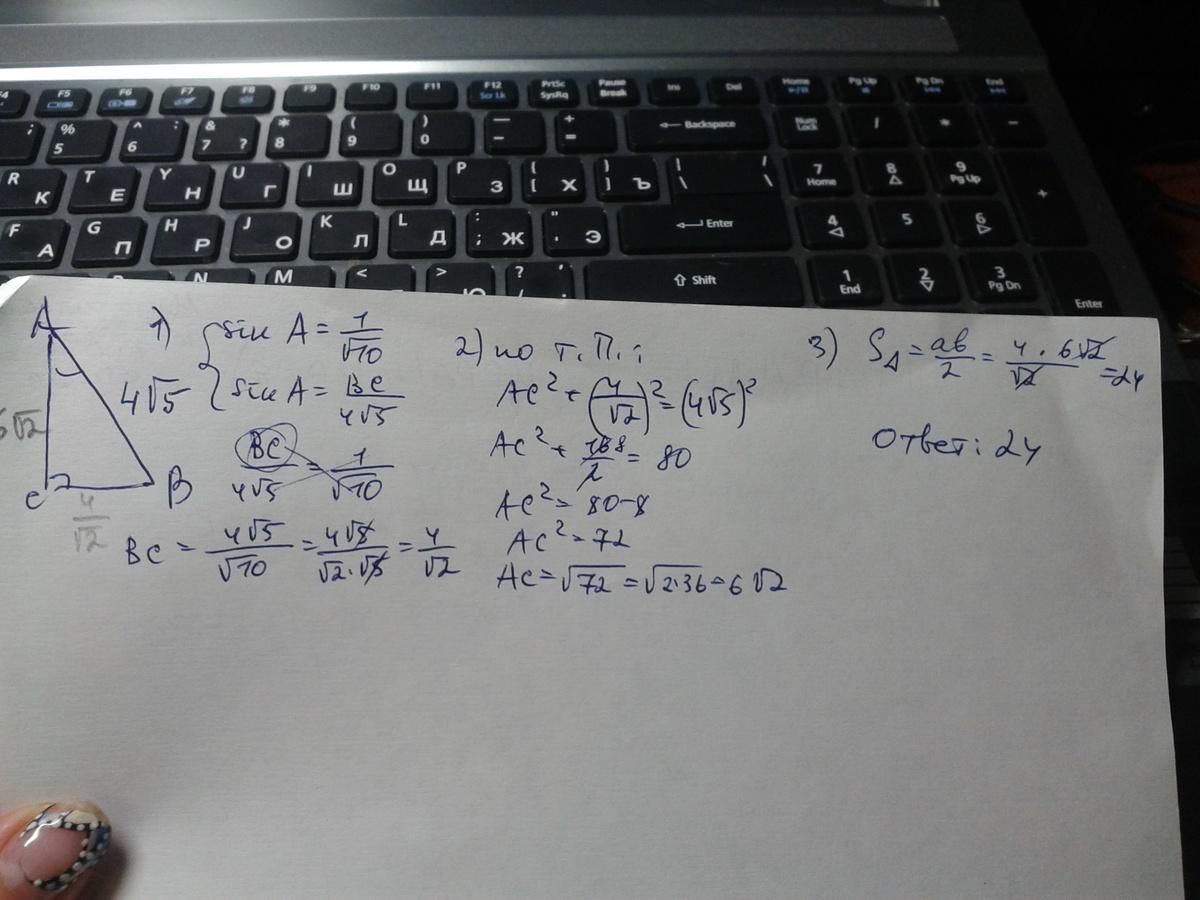 F4 F5 F6 F7 F8 F9 F10 F11 F12 Scr Lk PrtSc SysRq Pause Break Ins Del Home Pg Up Pg Dn End
; % 5 ^ 6 : & 7 ? * 8 ( 9 ) 0 — - + = ← Backspace Num Lock / * -
R К T Е Y Н U Г I Ш O Щ P З { [ Х } ] Ъ | \ / \ 7 Home 8 9 Pg Up +
F А G П H Р J О K Л L Д : ; Ж " ' Э Enter 4 5 6
N M < > ? / ⇧ Shift 1 End 2 3 Pg Dn Enter
A
4√5
6√2
C
B
4/√2
1) { sin A = 1/√10
sin A = BC/4√5
BC/4√5 = 1/√10
BC = 4√5/√10 = 4√5/√2·√5 = 4/√2
2) по т. П.:
AC² + (4/√2)² = (4√5)²
AC² + 16 8/2 = 80
AC² = 80-8
AC² = 72
AC = √72 = √2·36 = 6√2
3) S△ = ab/2 = 4·6√2/√2 = 24
Ответ: 24